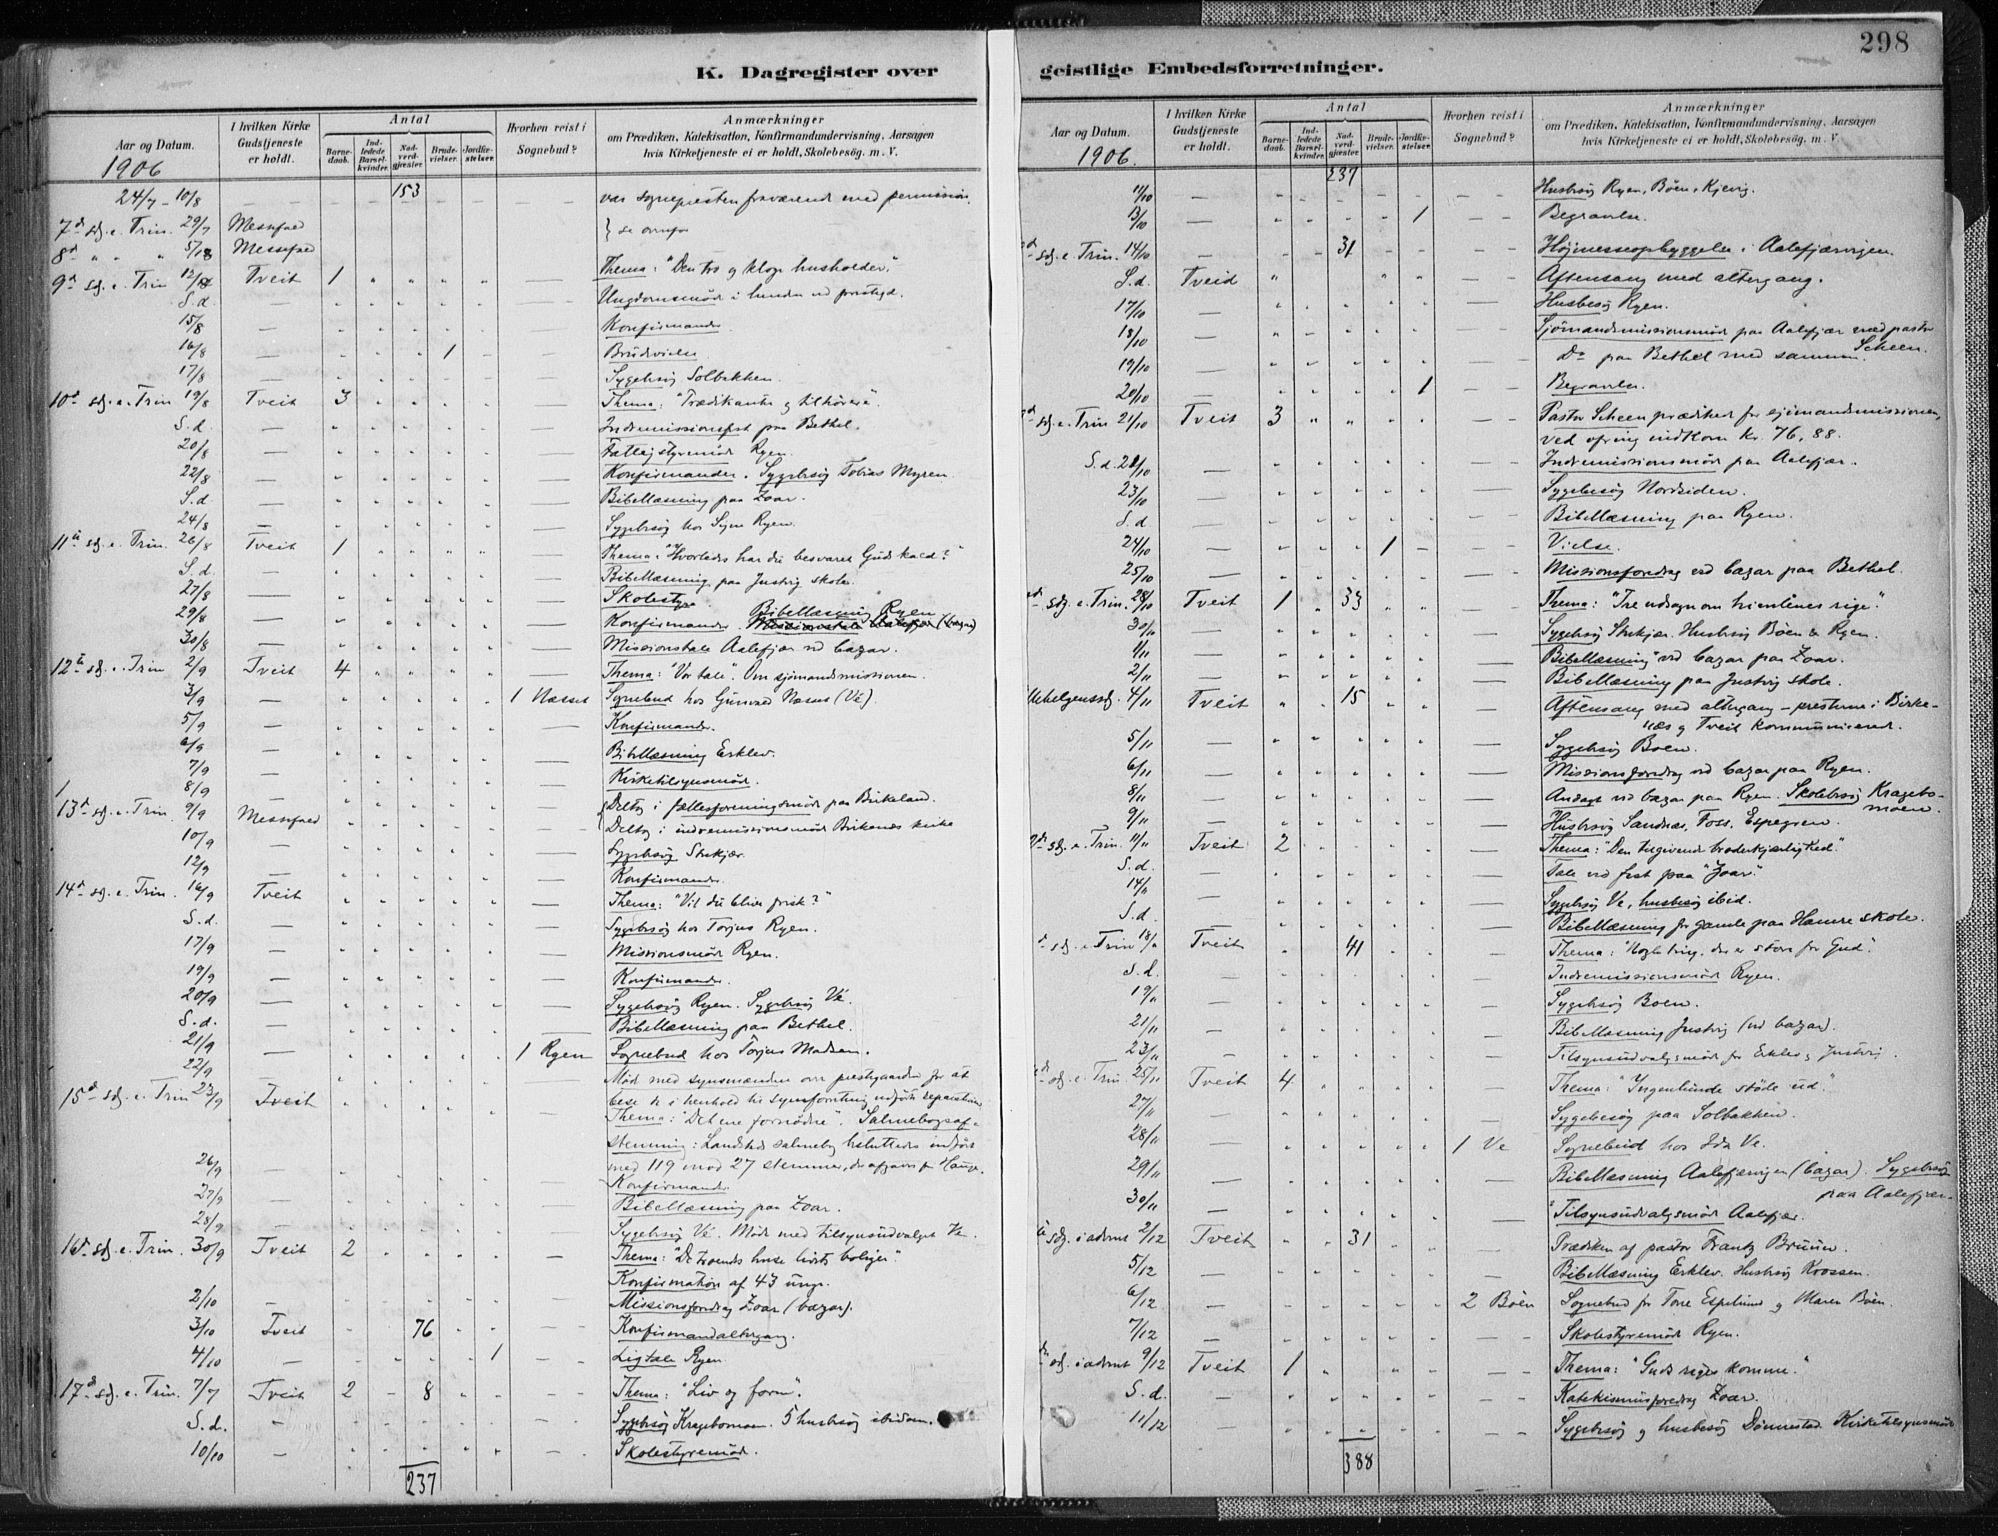 298
K. Dagregister over
geistlige Embedsforretninger.
Aar og Datum.
I hvilken Kirke Gudstjeneste er holdt.
Antal
Barnedaab.
Indledede Barselkvinder.
Nadverdgjæster.
Brudevielser.
Jordfæstelser.
Hvorhen reist i Sognebud?
Anmærkninger
om Prædiken, Katekisation, Konfirmandundervisning, Aarsagen
hvis Kirketjeneste ei er holdt, Skolebesøg. m. V.
1906
153
24/7 - 10/8 var sognepresten fraværende med permission.
7d sdg. e. Trin. 29/7 Messefald } se ovenfor
8d " " " 5/8 Messefald
9d sdg. e. Trin 12/8 Tveit 1 Thema: "Den tro og kloge husholder".
S.d. — Ungdomsmöde i lunden ved prestegd.
15/8 — Konfirmander.
16/8 — 1 Brudevielse
17/8 — Sygebesög Solbakken.
10d sdg. e. Trin 19/8 Tveit 3 Thema: "Prædikanter og tilhörere".
S.d. — Indremissionsfest paa Bethel.
20/8 — Fattigstyremöde Ryen.
22/8 — Konfirmander. Sygebesög Tobias Myren.
S.d. — Bibellæsning paa Zoar.
24/8 — Sygebesög hos Signe Ryen.
11te sdg. e. Trin. 26/8 Tveit 1 Thema: "Hvorledes har du besvaret Guds kald?"
S.d. — Bibellæsning paa Justvig skole.
27/8 — Skolestyre.
29/8 — Konfirmander. Bibellæsning Ryen
30/8 — Missionstale Aalefjær ved bazar.
12te sdg. e. Trin 2/9 Tveit 4 Thema: "Vor tale". Om sjömandsmissionen.
3/9 — 1 Næsset Sognebud hos Gunvald Næsset (Ve).
5/9 — Konfirmander.
6/9 — Bibellæsning Erklev.
7/9 — Kirketilsynsmöde.
8/9 — Deltog i fællesforeningsmöde paa Birkeland.
13d sdg. e. Trin. 9/9 Messefald Deltog i indremissionsmöde Birkenes kirke
10/9 — Sygebesög Strekjær.
12/9 — Konfirmander.
14d sdg. e. Trin. 16/9 Tveit Thema: "Vil du blive frisk?"
S.d. — Sygebesög hos Torjus Ryen.
17/9 — Missionsmöde Ryen.
19/9 — Konfirmander.
20/9 — Sygebesög Ryen. Sygebesög Ve.
S.d. — Bibellæsning paa Bethel.
21/9 — 1 Ryen Sognebud hos Torjus Madsen.
22/9 Möde med synsmændene over prestegaarden for at
bese de i henhold til synsforretning udförte reparationer
15d sdg. e. Trin 23/9 Tveit Thema: "Det ene fornödne". Salmebogsaf-
stemning: Landstads salmebog besluttedes indfört
med 119 mod 27 stemmer, der afgaves for Hauge.
26/9 — Konfirmander
27/9 — Bibellæsning paa Zoar.
28/9 — Sygebesög Ve. Möde med tilsynsudvalget Ve.
16d sdg. e. Trin. 30/9 Tveit 2 Thema: "De troendes huse livets boliger".
Konfirmation af 43 unge.
2/10 — Missionsforedrag Zoar (bazar).
3/10 Tveit 76 Konfirmandaltergang.
4/10 — 1 Ligtale Ryen.
17d sdg. e. Trin. 7/7 Tveit 2 8 Thema: "Liv og form".
S.d. — Sygebesög Kragebomoen. 5 husbesög ibidem.
10/10 — Skolestyremöde.
237
Aar og Datum.
I hvilken Kirke Gudstjeneste er holdt.
Antal
Barnedaab.
Indledede Barselkvinder.
Nadverdgjæster.
Brudevielser.
Jordfæstelser.
Hvorhen reist i Sognebud?
Anmærkninger
om Prædiken, Katekisation, Konfirmandundervisning, Aarsagen
hvis Kirketjeneste ei er holdt, Skolebesög, m. V.
1906.
237
11/10 — Husbesög Ryen, Böen, Kjevig.
13/10 — 1 Begravelse.
sdg. e. Trin. 14/10 — 31 Höjmesseopbyggelse i Aalefjærvigen.
S.d. Tveid Aftensang med altergang.
17/10 — Husbesög Ryen.
18/10 — Sjömandsmissionsmöde paa Aalefjær med pastor Scheen.
19/10 — Do paa Bethel med samme.
20/10 — 1 Begravelse.
sdg. e. Trin 21/10 Tveit 3 Pastor Scheen prædiked for sjömandsmissionen,
ved ofring indkom kr. 76,88.
S.d. 21/10 — Indremissionsmöde paa Aalefjær.
23/10 — Sygebesög Nordsiden.
S.d — Bibellæsning paa Ryen.
24/10 — 1 Vielse.
25/10 — Missionsforedrag ved bazar paa Bethel.
sdg. e. Trin. 28/10 Tveit 1 33 Thema: "Tre udsagn om himlenes rige".
30/10 — Sygebesög Strekjær. Husbesög Böen & Ryen.
1/11 — Bibellæsning ved bazar paa Zoar.
2/11 — Bibellæsning paa Justvig skole.
Allehelgenssdg. 4/11 Tveit 15 Aftensang med altergang – presterne i Birke-
næs og Tveit kommunicered.
5/11 — Sygebesög Boen.
6/11 — Missionsforedrag ved bazar paa Ryen.
8/11 — Andagt ved bazar paa Ryen. Skolebesög Kragebo-
moen.
9/11 — Husbesög Sandnæs, Foss, Espegren.
sdg. e. Trin. 11/11 Tveit 2 Thema: "Den tilgivende broderkjærlighed."
S.d. — Tale ved fest paa "Zoar".
14/11 — Sygebesög Ve, husbesög ibid.
S.d. — Bibellæsning for gamle paa Hamre skole.
sdg. e. Trin 18/11 Tveit 41 Thema: "Nogle ting, der er store for Gud".
S.d. — Indremissionsmöde Ryen.
19/11 — Sygebesög Boen.
21/11 — Bibellæsning Justvig (ved bazar).
23/11 — Tilsynsudvalgsmöde for Erklev og Justvig.
sdg. e. Trin 25/11 Tveit 4 Thema: "Ingenlunde støde ud."
27/11 — Sygebesög paa Solbakken.
28/11 — 1 Ve Sognebud hos Ida Ve.
29/11 — Bibellæsning Aalefjærvigen (bazar). Sygebesög
paa Aalefjær.
30/11 — Tilsynsudvalgsmöde Aalefjær.
sdg. i advent 2/12 Tveit 31 Prædiken af pastor Frantz Bruun.
5/12 — Bibellæsning Erklev. Husbesög Krossen.
6/12 — 2 Böen Sognebud for Tone Espelund og Maren Böen.
7/12 — Skolestyremöde Ryen.
sdg. i advent 9/12 Tveit 1 Thema: "Guds riges komme."
S.d. — Katekismusforedrag Zoar.
11/12 — Sygebesög og husbesög Dönnestad. Kirketilsynsmöde
388